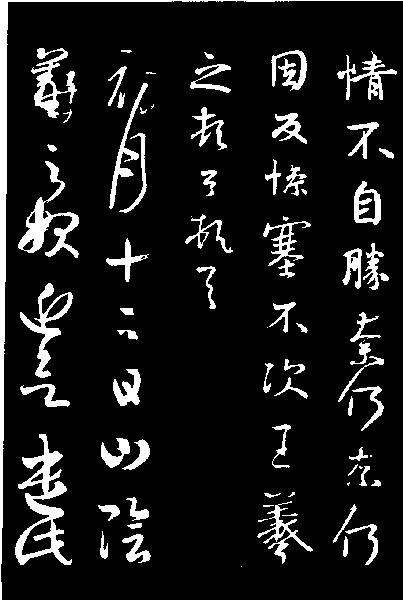 情不自勝奈何奈何
因反慘塞不次王羲
之頓首頓首
初月十二日山陰
羲之報近欲遣此